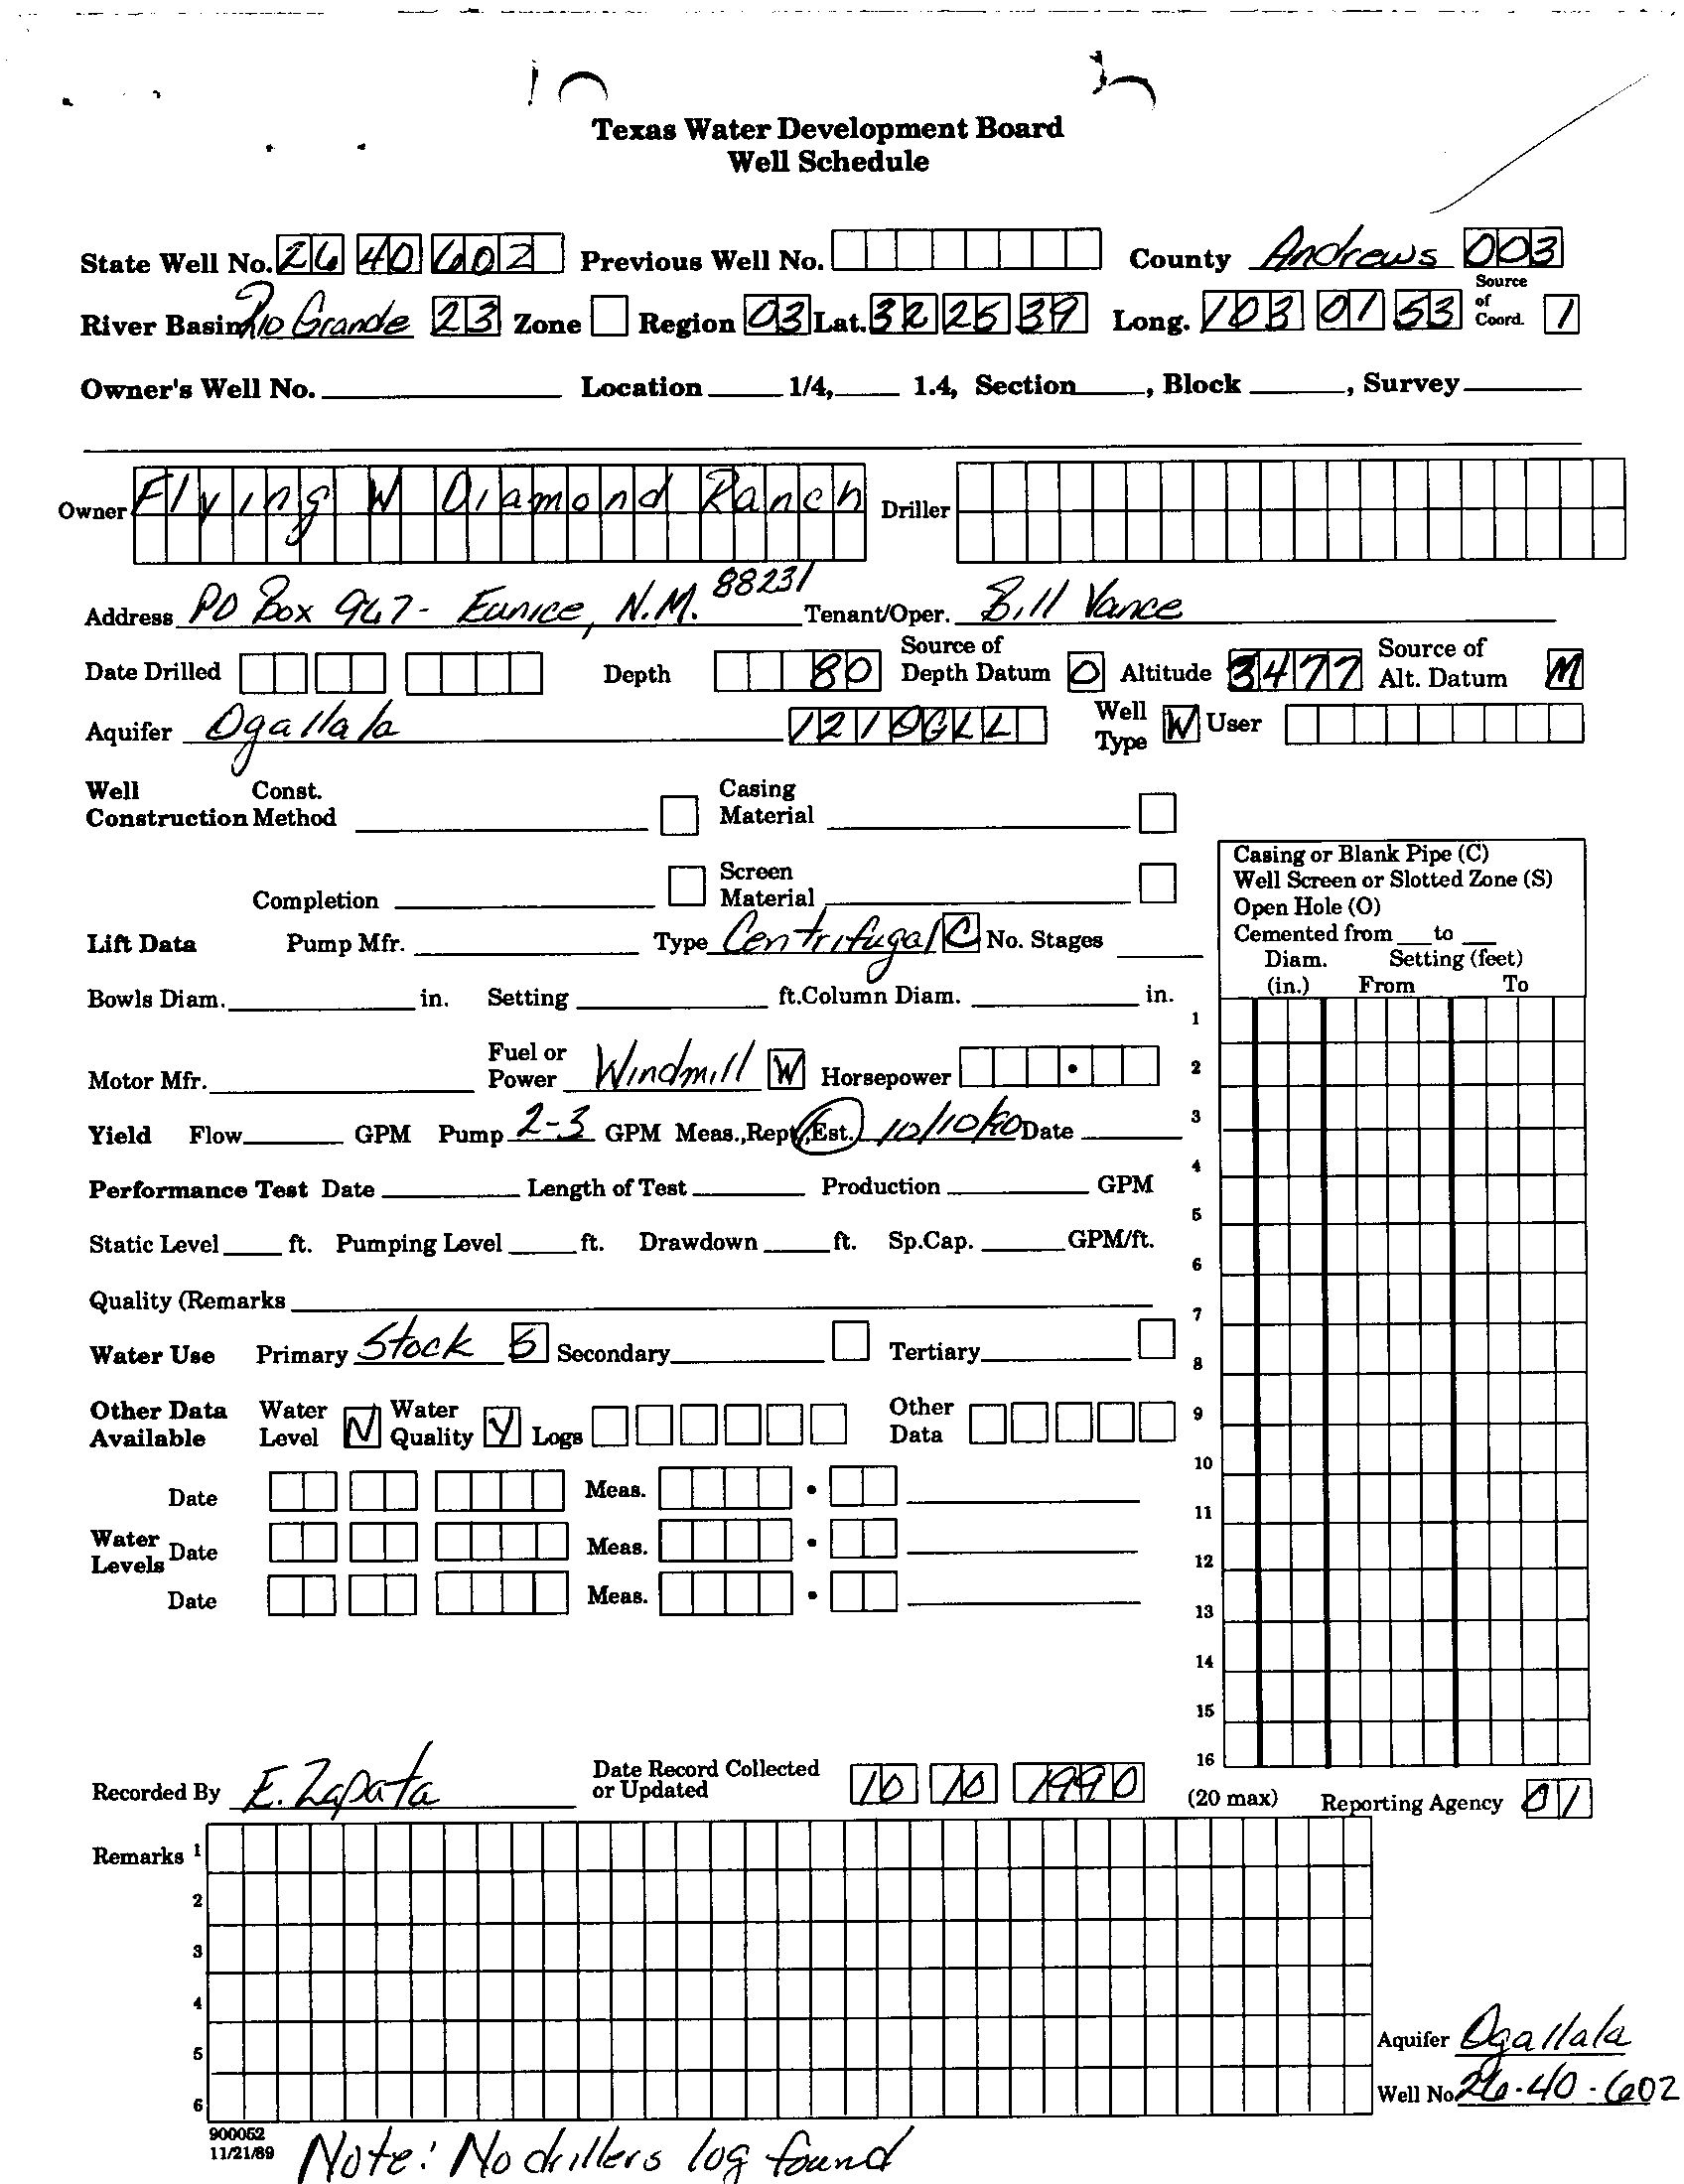 Texas Water Development Board
Well Schedule
State Well No. 26 40 602 Previous Well No. County Andrews 003
River Basin Rio Grande 23 Zone Region 03 Lat. 32 25 39 Long. 103 01 53 Source of Coord. 1
Owner's Well No. Location 1/4, 1.4, Section , Block , Survey
Owner Flying W Diamond Ranch Driller
Address PO Box 967 - Eunice, N.M. 88231 Tenant/Oper. Bill Vance
Date Drilled Depth 80 Source of Depth Datum O Altitude 3477 Source of Alt. Datum M
Aquifer Ogallala 121OGLL Well Type W User
Well Construction Const. Method Casing Material
Completion Screen Material
Casing or Blank Pipe (C)
Well Screen or Slotted Zone (S)
Open Hole (O)
Cemented from to
Diam. (in.) Setting (feet) From To
Lift Data Pump Mfr. Type Centrifugal C No. Stages
Bowls Diam. in. Setting ft. Column Diam. in.
Motor Mfr. Fuel or Power Windmill W Horsepower .
Yield Flow GPM Pump 2-3 GPM Meas.,Rept.,Est. 10/10/90 Date
Performance Test Date Length of Test Production GPM
Static Level ft. Pumping Level ft. Drawdown ft. Sp.Cap. GPM/ft.
Quality (Remarks
Water Use Primary Stock S Secondary Tertiary
Other Data Available Water Level N Water Quality Y Logs Other Data
Date Meas. .
Water Levels Date Meas. .
Date Meas. .
1
2
3
4
5
6
7
8
9
10
11
12
13
14
15
16
Recorded By E. Zapata Date Record Collected or Updated 10 10 1990 (20 max) Reporting Agency 01
Remarks 1
2
3
4
5
6
Aquifer Ogallala
Well No. 26-40-602
900052
11/21/89
Note: No drillers log found